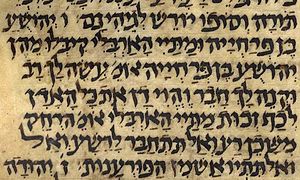 תורה וסופו יורש לגיהינם ו יהושע
בן פרחייה ומתיי הארבלי קיבלו מהן
יהושע בן פרחייה אומ עשה לך רב
וקנה לך חבר והוי דן את כל האדם
לכף זכות מתיי הארבלי אומ הרחק
משכן רע ואל תתחבר לרשע ואל
ואל תתיואש מן הפורענות ז יהודה